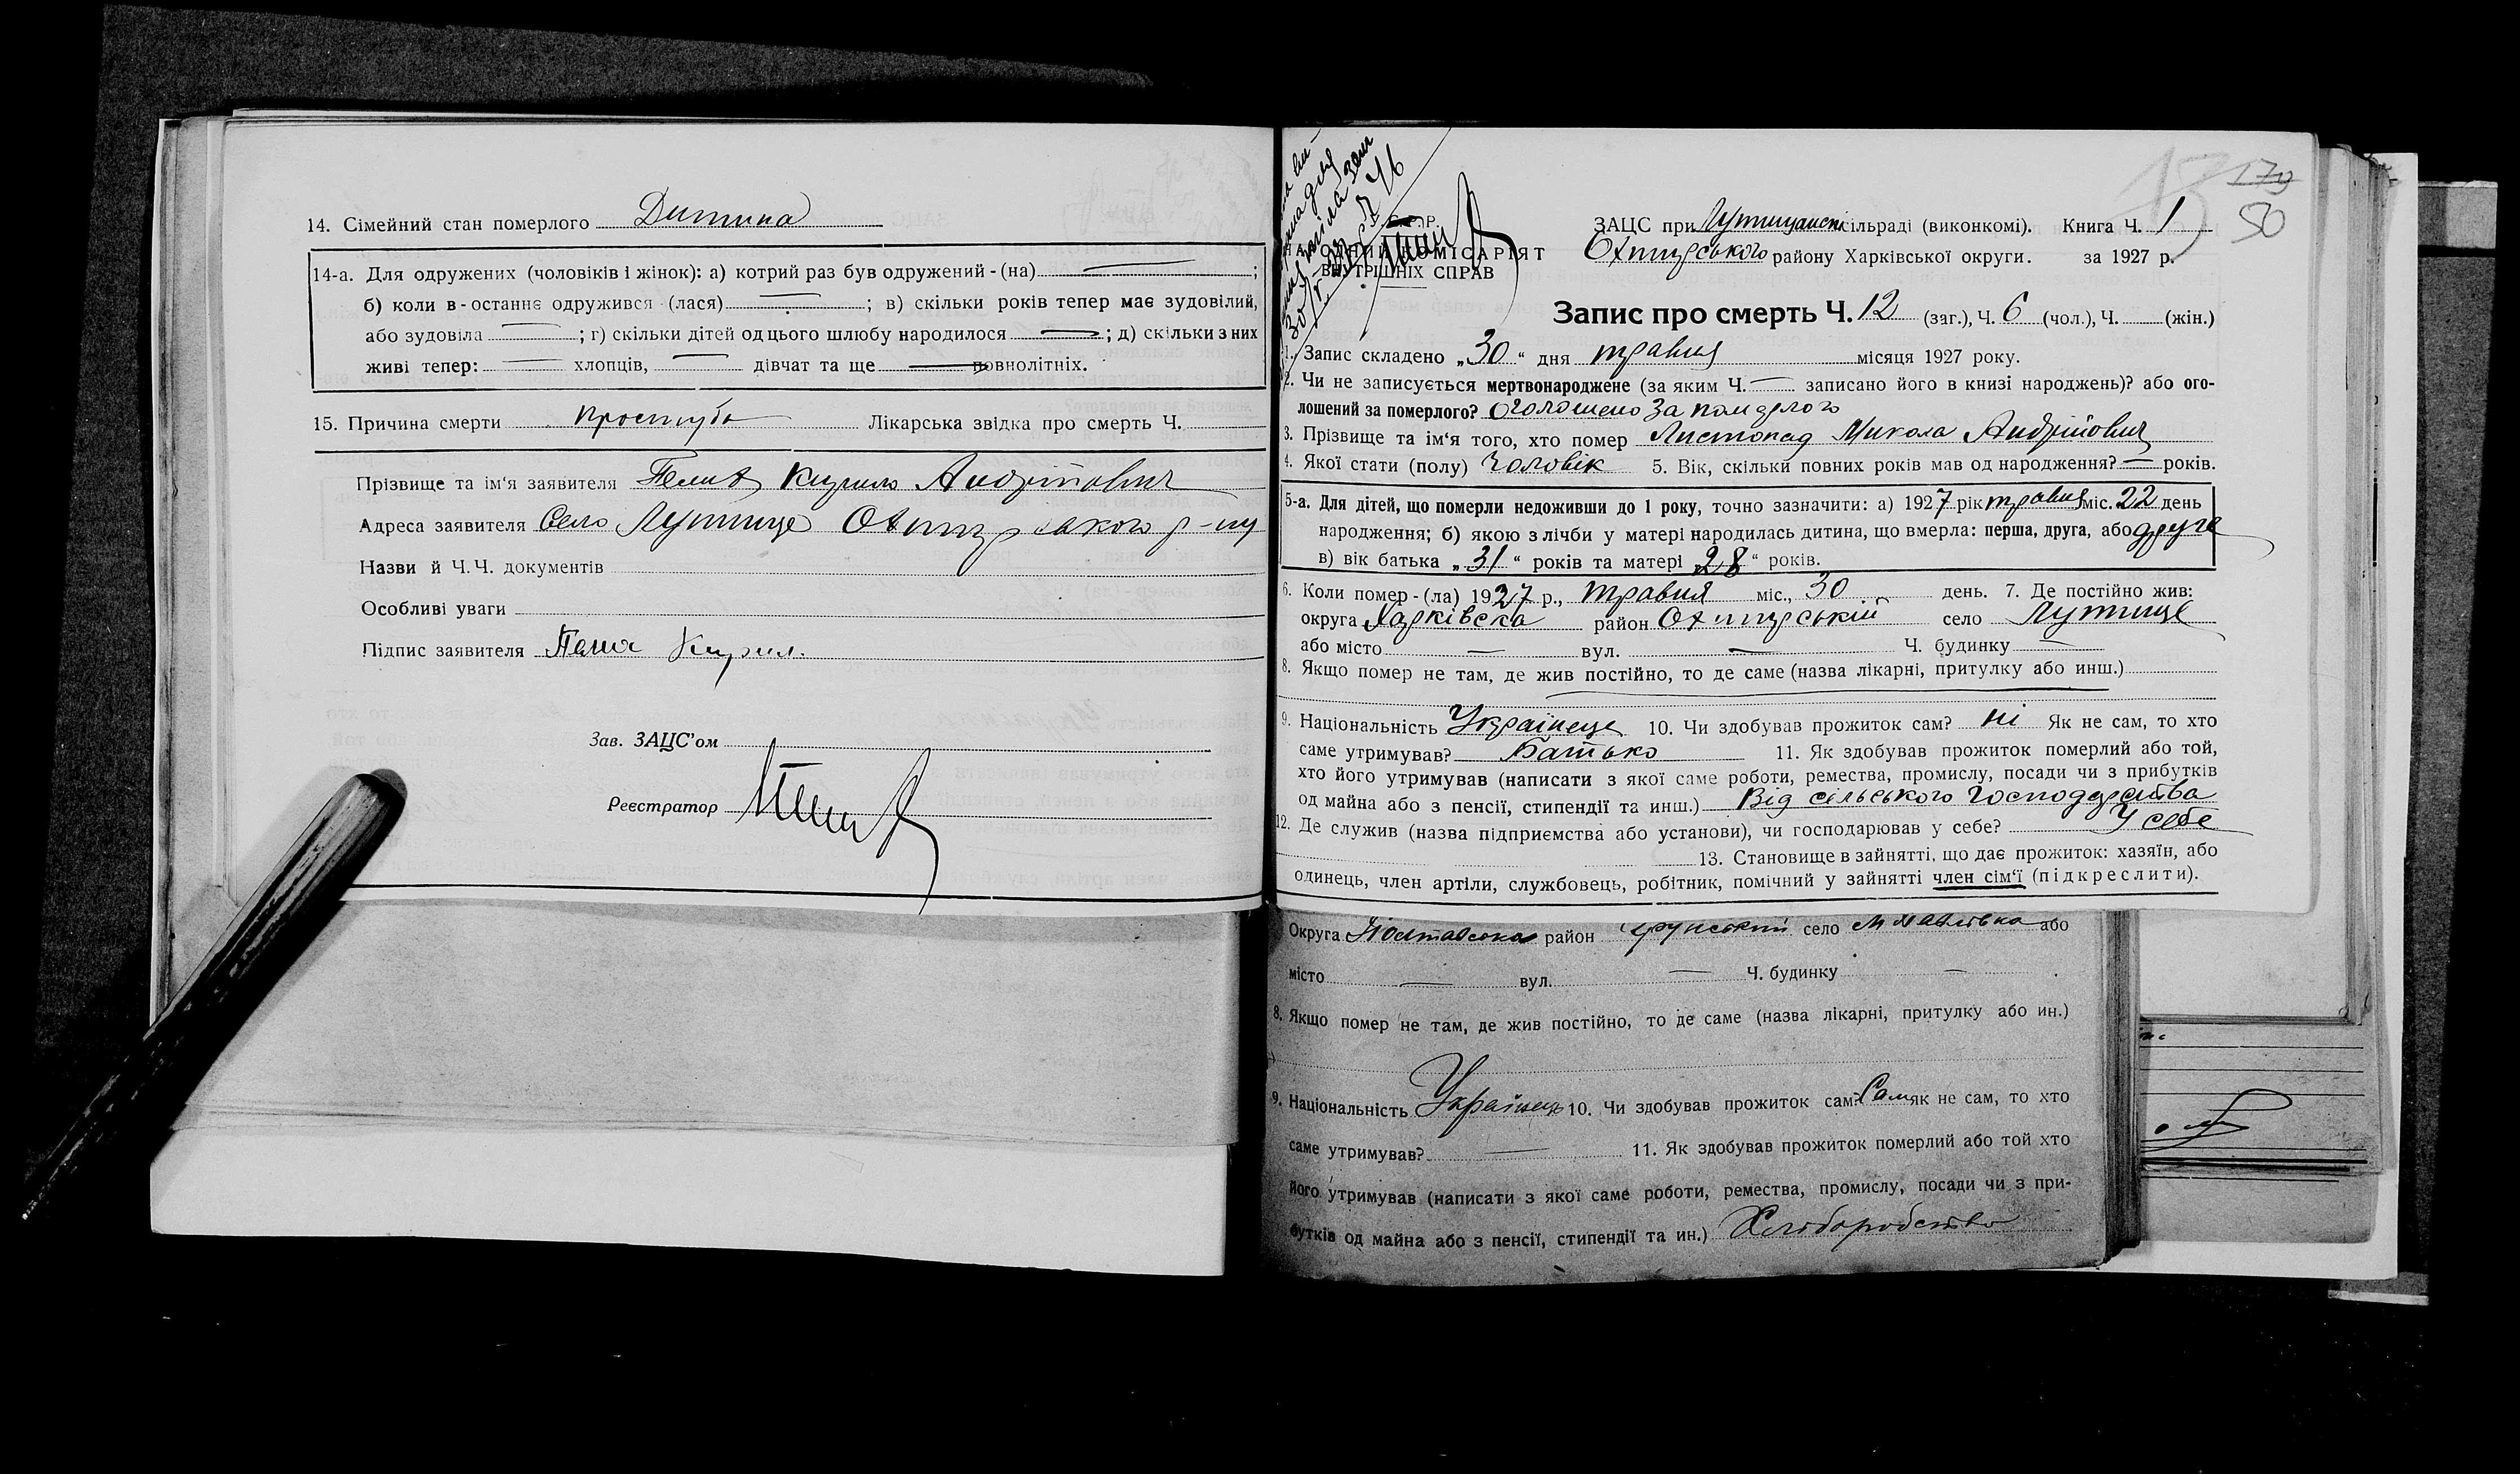 14. Сімейний стан померлого Дитина
14-а. Для одружених (чоловіків і жінок): а) котрий раз був одружений - (на) ;
б) коли в-останнє одружився (лася) ; в) скільки років тепер має зудовілий,
або зудовіла ; г) скільки дітей од цього шлюбу народилося ; д) скільки з них
живі тепер: хлопців, дівчат та ще повнолітніх.
15. Причина смерти простуда Лікарська звідка про смерть Ч.
Прізвище та ім'я заявителя Кирило Андрійович
Адреса заявителя Село Лутище Охтирського р-ну
Назви й Ч.Ч. документів
Особливі уваги
Підпис заявителя Кирил.
Зав. ЗАЦС'ом
Реєстратор
179
50
С.Р.Р.
НАРОДНИЙ КОМІСАРІЯТ
ВНУТРІШНІХ СПРАВ
ЗАЦС при Лутищанскі сільраді (виконкомі). Книга Ч. 1
Охтирського району Харківської округи. за 1927 р.
Запис про смерть Ч. 12 (заг.), Ч. 6 (чол.), Ч. (жін.)
1. Запис складено „30" дня травня місяця 1927 року.
2. Чи не записується мертвонароджене (за яким Ч. записано його в книзі народжень)? або ого-
лошений за померлого? Оголошено за померлого
3. Прізвище та ім'я того, хто помер Листопад Микола Андрійович
4. Якої стати (полу) Чоловік 5. Вік, скільки повних років мав од народження? — років.
5-а. Для дітей, що померли недоживши до 1 року, точно зазначити: а) 1927 рік травня міс. 22 день
народження; б) якою з лічби у матері народилась дитина, що вмерла: перша, друга, або друге
в) вік батька „31" років та матері „28" років.
6. Коли помер - (ла) 1927 р., травня міс., 30 день. 7. Де постійно жив:
округа Харківска район Охтирський село Лутище
або місто — вул. — Ч. будинку —
8. Якщо помер не там, де жив постійно, то де саме (назва лікарні, притулку або инш.)
9. Національність Українець 10. Чи здобував прожиток сам? ні Як не сам, то хто
саме утримував? Батько 11. Як здобував прожиток померлий або той,
хто його утримував (написати з якої саме роботи, ремества, промислу, посади чи з прибутків
од майна або з пенсії, стипендії та инш.) Від сільського господарства
12. Де служив (назва підприємства або установи), чи господарював у себе? У себе
13. Становище в зайнятті, що дає прожиток: хазяїн, або
одинець, член артіли, службовець, робітник, помічний у зайнятті член сім'ї (підкреслити).
Округа Полтавська район Грунський село або
місто — вул. — Ч. будинку —
8. Якщо помер не там, де жив постійно, то де саме (назва лікарні, притулку або ин.)
9. Національність Українець 10. Чи здобував прожиток сам? Сам як не сам, то хто
саме утримував? — 11. Як здобував прожиток померлий або той хто
його утримував (написати з якої саме роботи, ремества, промислу, посади чи з при-
бутків од майна або з пенсії, стипендії та ин.) Хліборобство